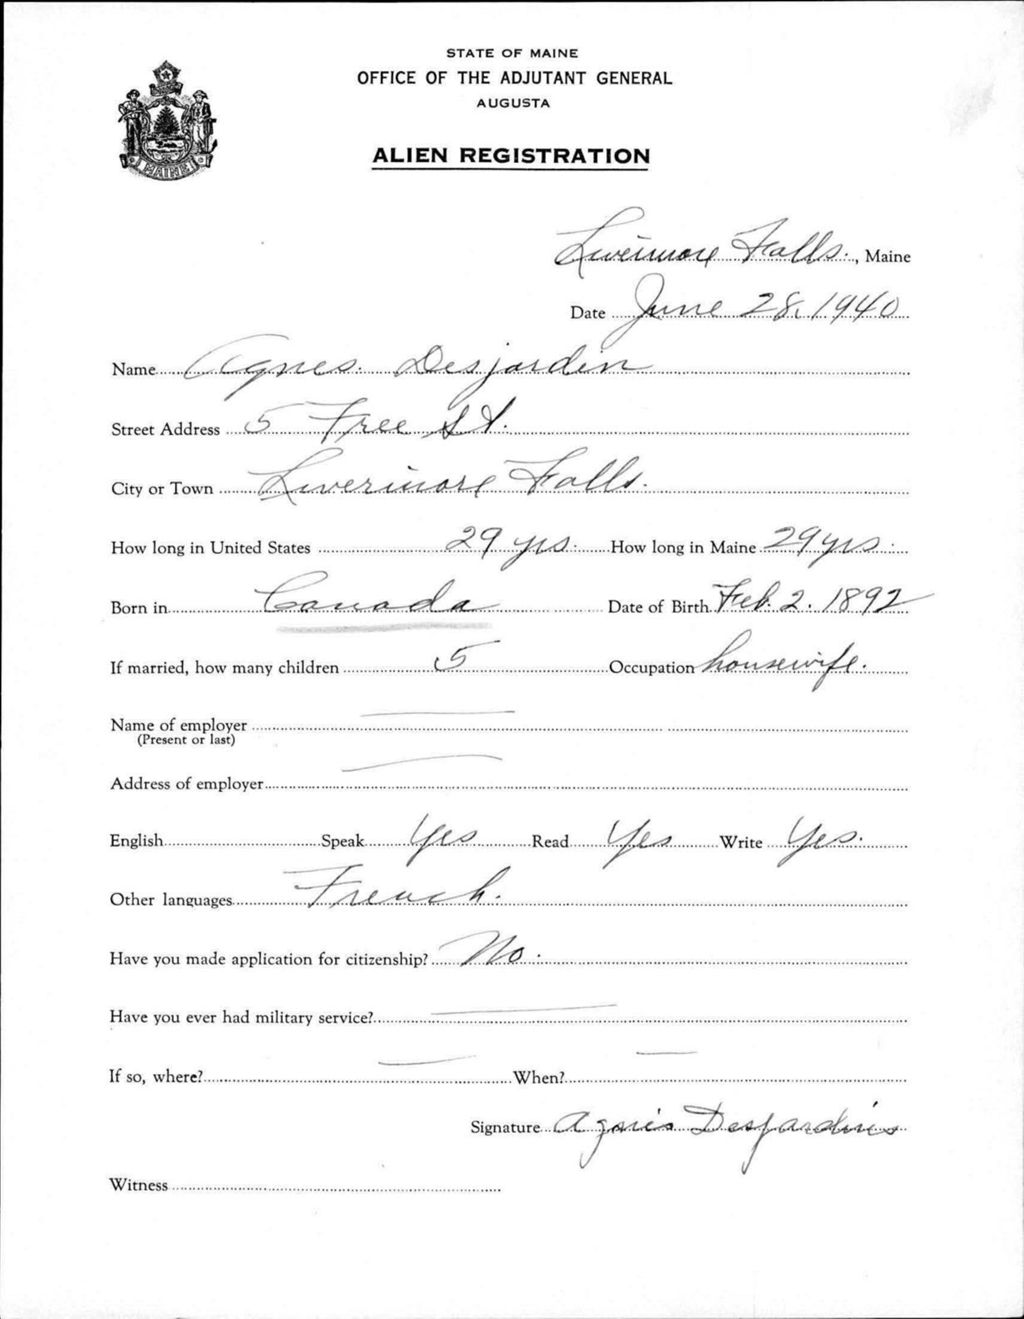 STATE OF MAINE
OFFICE OF THE ADJUTANT GENERAL
AUGUSTA
ALIEN REGISTRATION
MAINE
Livermore Falls., Maine
Date June 28, 1940
Name Agnes. Desjardin
Street Address 5 Free St.
City or Town Livermore Falls.
How long in United States 29 yrs. How long in Maine 29 yrs.
Born in Canada Date of Birth Feb. 2. 1892
If married, how many children 5 Occupation housewife.
Name of employer
(Present or last)
Address of employer
English Speak Yes Read Yes Write Yes.
Other languages French.
Have you made application for citizenship? No.
Have you ever had military service?
If so, where? When?
Signature Agnes Desjardins
Witness